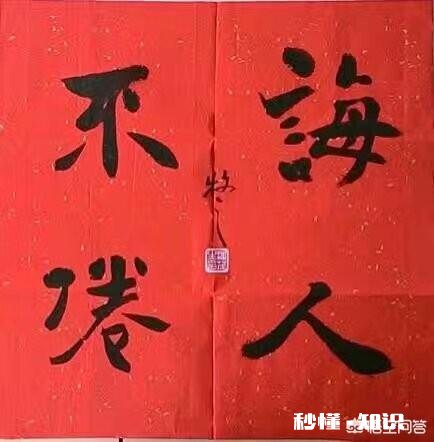 誨人
不倦
秒懂 知识
悟空问答